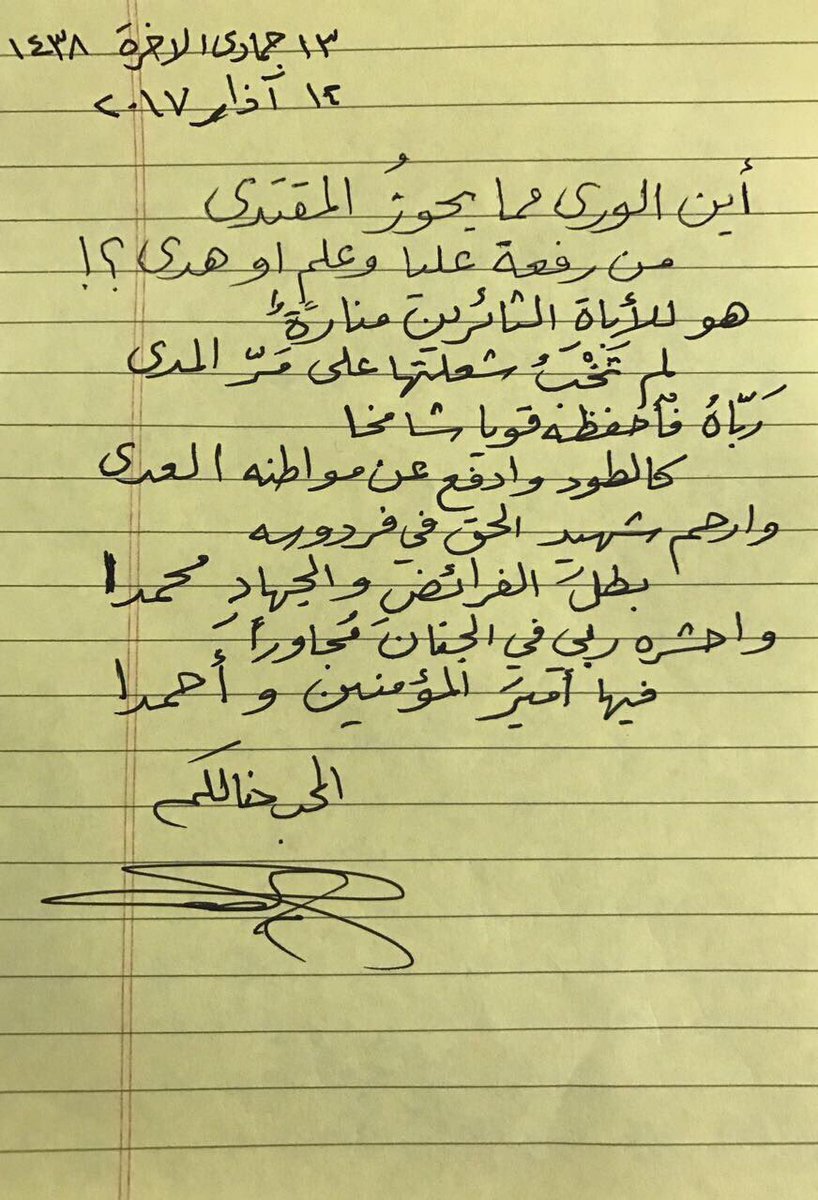 ١٣ جمادى الاخرة ١٤٣٨
١٢ آذار ٢٠١٧
أين الورى مما يحوزُ المقتدى
من رفعة عليا وعلمٍ او هدى ؟!
هو للأباةِ الثائرين منارةٌ
لم تَخْبُ شعلتها على مَرّ المدى
رَبّاهُ فأحفظه قويا شامخا
كالطود وادفع عن مواطنه العدى
وارحم شهيد الحق في فردوسه
بطلَ الفرائض والجهادِ محمدا
واحشره ربي في الجنان مُجاوراً
فيها أميرَ المؤمنين وأحمدا
المحب خالكم